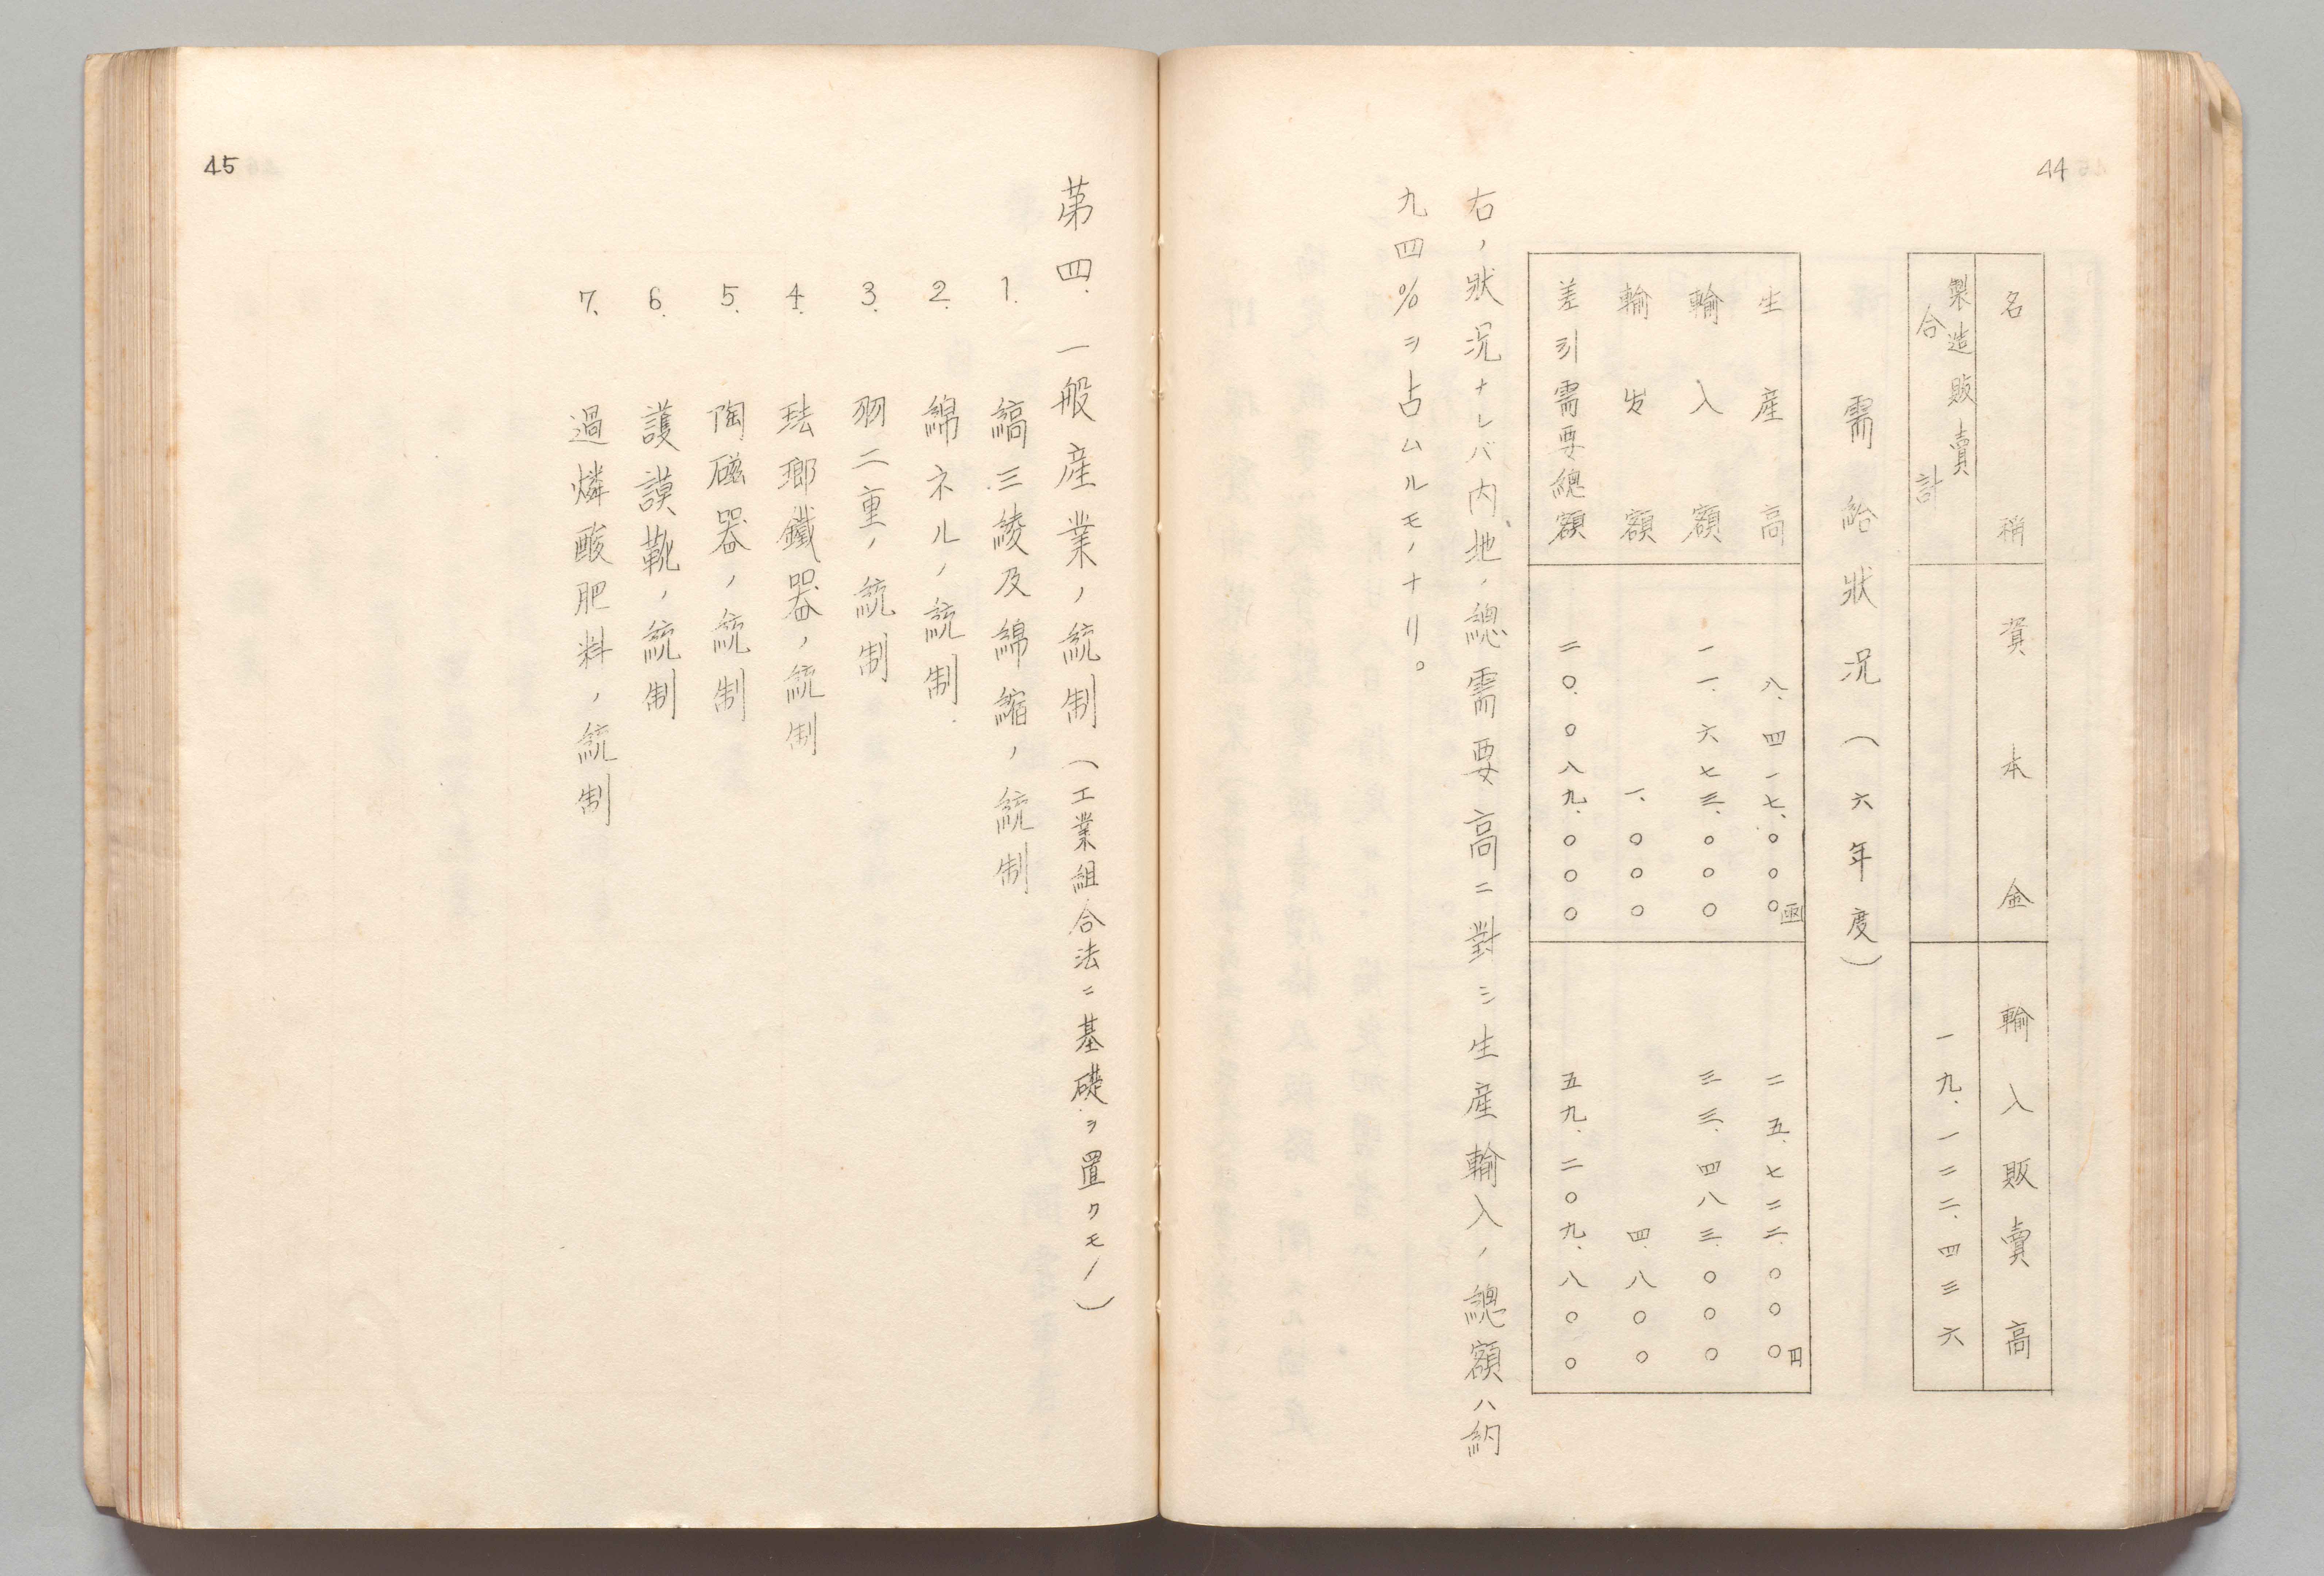 44
名稱 資本金 輸入販賣高
製造販賣
合計 一九.一二二.四三六
需給狀況(六年度)
生産高 八.四一七.〇〇〇函 二五.七二二.〇〇〇円
輸入額 一一.六七三.〇〇〇 三三.四八三.〇〇〇
輸出額 一.〇〇〇 四.八〇〇
差引需要總額 二〇.〇八九.〇〇〇 五九.二〇九.八〇〇
右ノ狀況ナレバ内地ノ總需要高ニ對シ生産輸入ノ總額ハ約
九四%ヲ占ムルモノナリ。
45
第四.一般産業ノ統制(工業組合法ニ基礎ヲ置クモノ)
1. 縞三綾及綿縮ノ統制
2. 綿ネルノ統制.
3. 羽二重ノ統制
4. 琺瑯鐵器ノ統制
5. 陶磁器ノ統制
6. 護謨靴ノ統制
7. 過燐酸肥料ノ統制